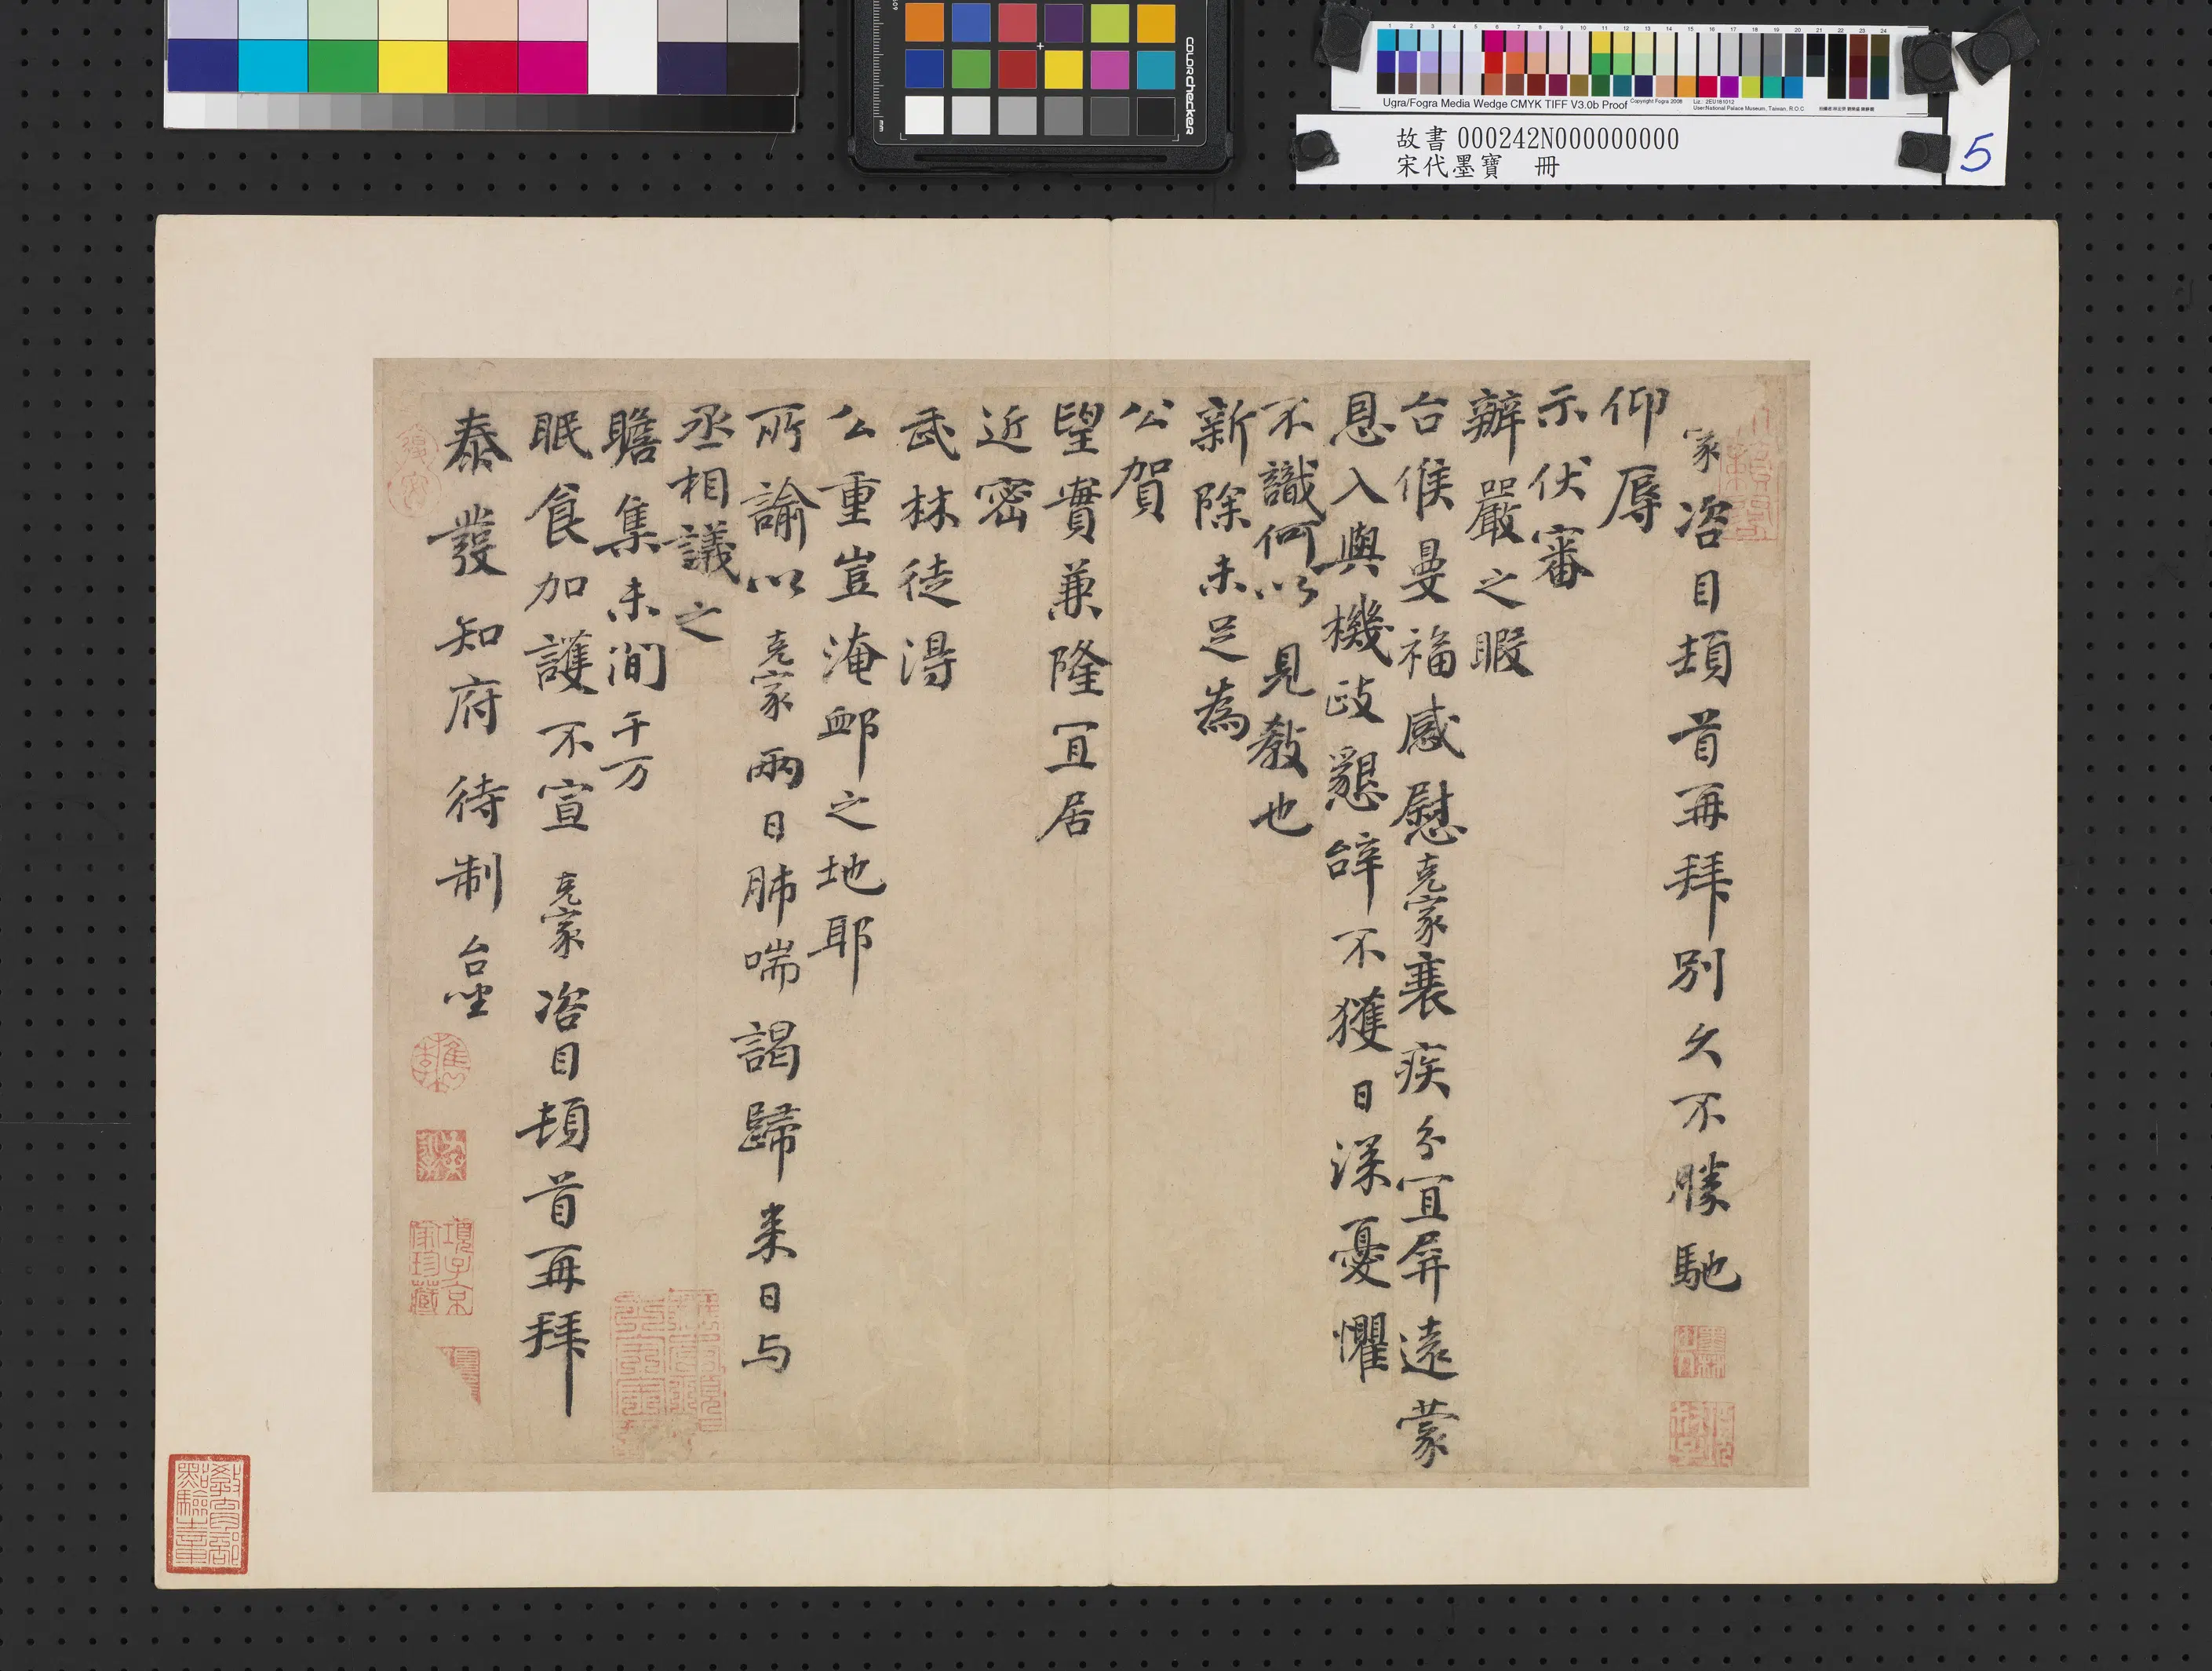 Ugra/Fogra Media Wedge CMYK TIFF V3.0b Proof
Copyright Fogra 2008
User:National Palace Museum, Taiwan, R.O.C
colorchecker
故書 000242N000000000
宋代墨寶 冊
5
家咨目頓首再拜別久不勝馳
仰辱
示伏審
辦嚴之暇
台候曼福感慰克家衰疾分宜屏遠蒙
恩入與機政懇辞不獲日深憂懼
不識何以見教也
新除未足為
公賀
望實兼隆宜居
近密
武林徒得
公重豈淹卹之地耶
所諭以克家兩日肺喘謁歸来日与
丞相議之
瞻集未間千万
眠食加護不宣 克家咨目頓首再拜
泰發知府待制 台坐
項子京家珍藏
教育部點驗之章